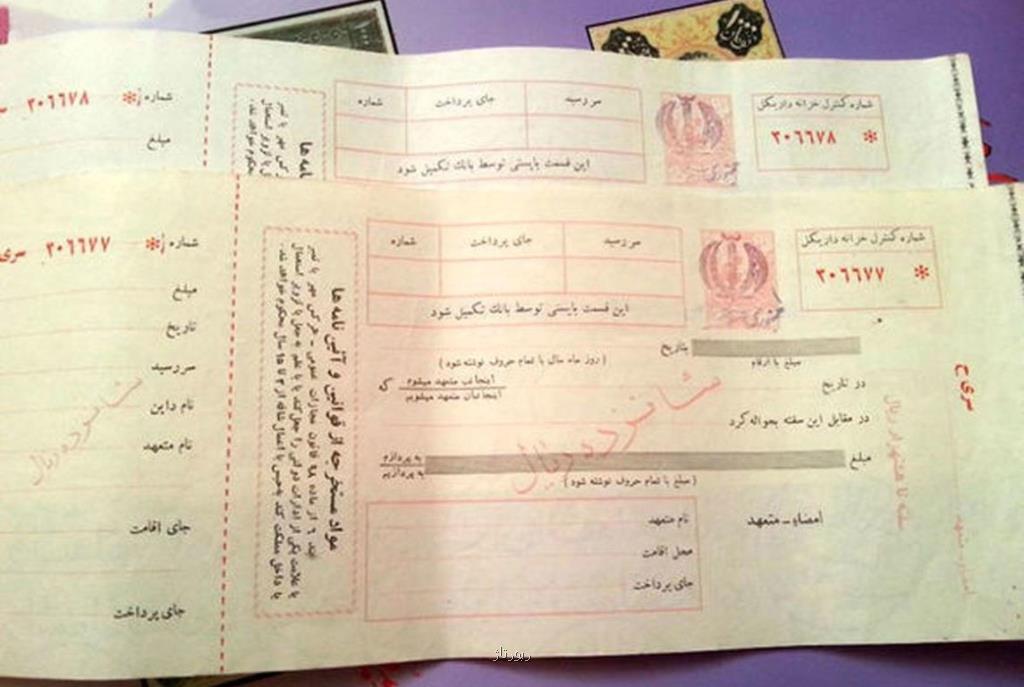 شماره ۳۰٦٦۷۸
مبلغ
شماره
جای پرداخت
سررسید
این قسمت بایستی توسط بانک تکمیل شود
جمهوری
شماره کنترل خزانه داریکل
۳۰٦٦۷۸
شماره ۳۰٦٦۷۷ سری
مبلغ
تاریخ
سررسید
نام داین
نام متعهد
شانزده ریال
جای اقامت
جای پرداخت
مواد مستخرجه از قوانین و آئین نامه ها
شماره
جای پرداخت
سررسید
این قسمت بایستی توسط بانک تکمیل شود
جمهوری
شماره کنترل خزانه داریکل
۳۰٦٦۷۷
مبلغ با ارقام
بتاریخ
( روز ماه سال با تمام حروف نوشته شود )
در تاریخ
اینجانب متعهد میشوم
اینجانبان متعهد میشویم
که
در مقابل این سفته بحواله کرد
شانزده ریال
مبلغ
به پردازم
به پردازیم
( مبلغ با تمام حروف نوشته شود )
امضاء ـ متعهد
نام متعهد
محل اقامت
جای پرداخت
سری ح
سفته تا هشتهزار ریال
رپورتاژ